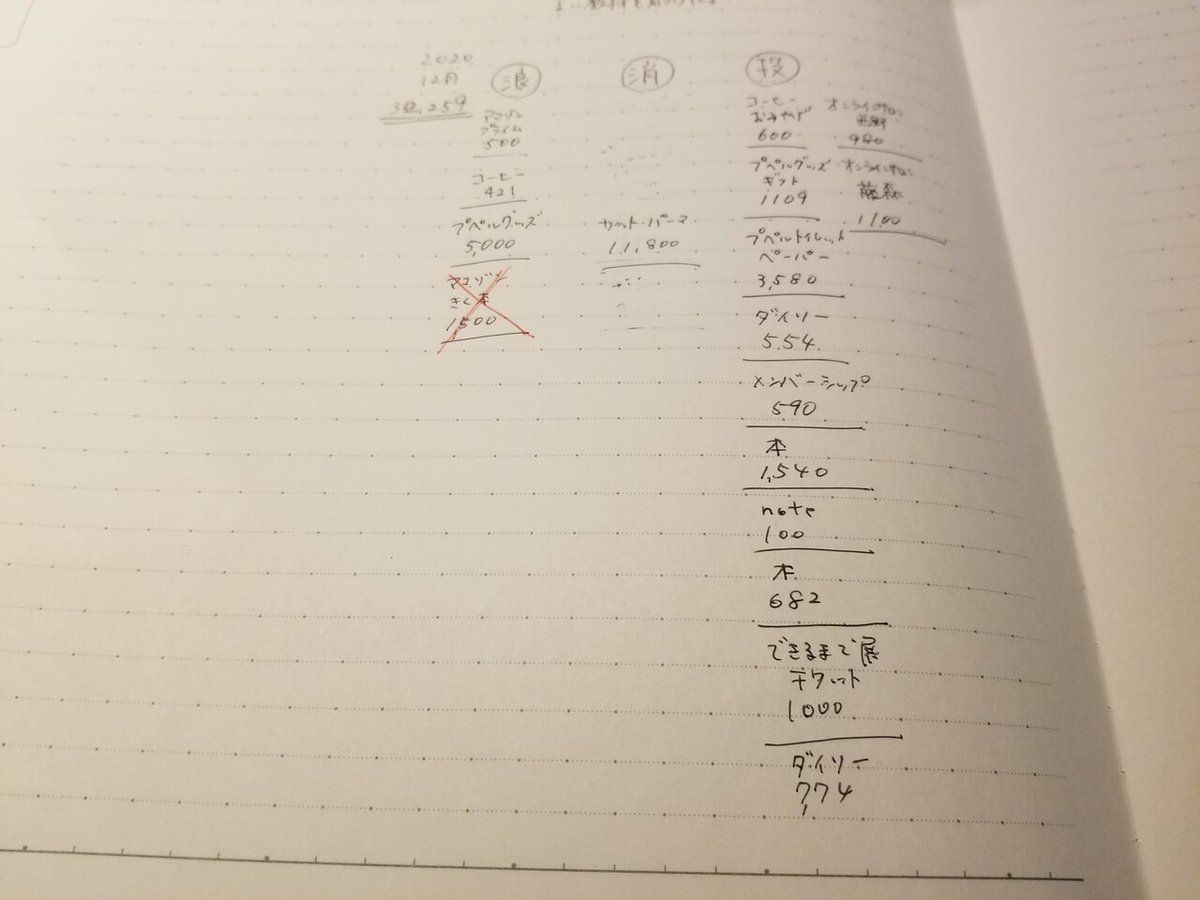 2020
12月
浪
アマゾン
プライム
500
コーヒー
421
プペルグッズ
5,000
アマゾン
きく本
1500
消
カット・パーマ
11,800
投
コーヒー
おみやげ
600
プペルグッズ
ギフト
1109
プペルトイレット
ペーパー
3,580
ダイソー
554
メンバーシップ
590
本
1,540
note
100
本
682
できるまで展
チケット
1000
ダイソー
774
オンラインサロン
西野
980
オンラインサロン
藤森
1100